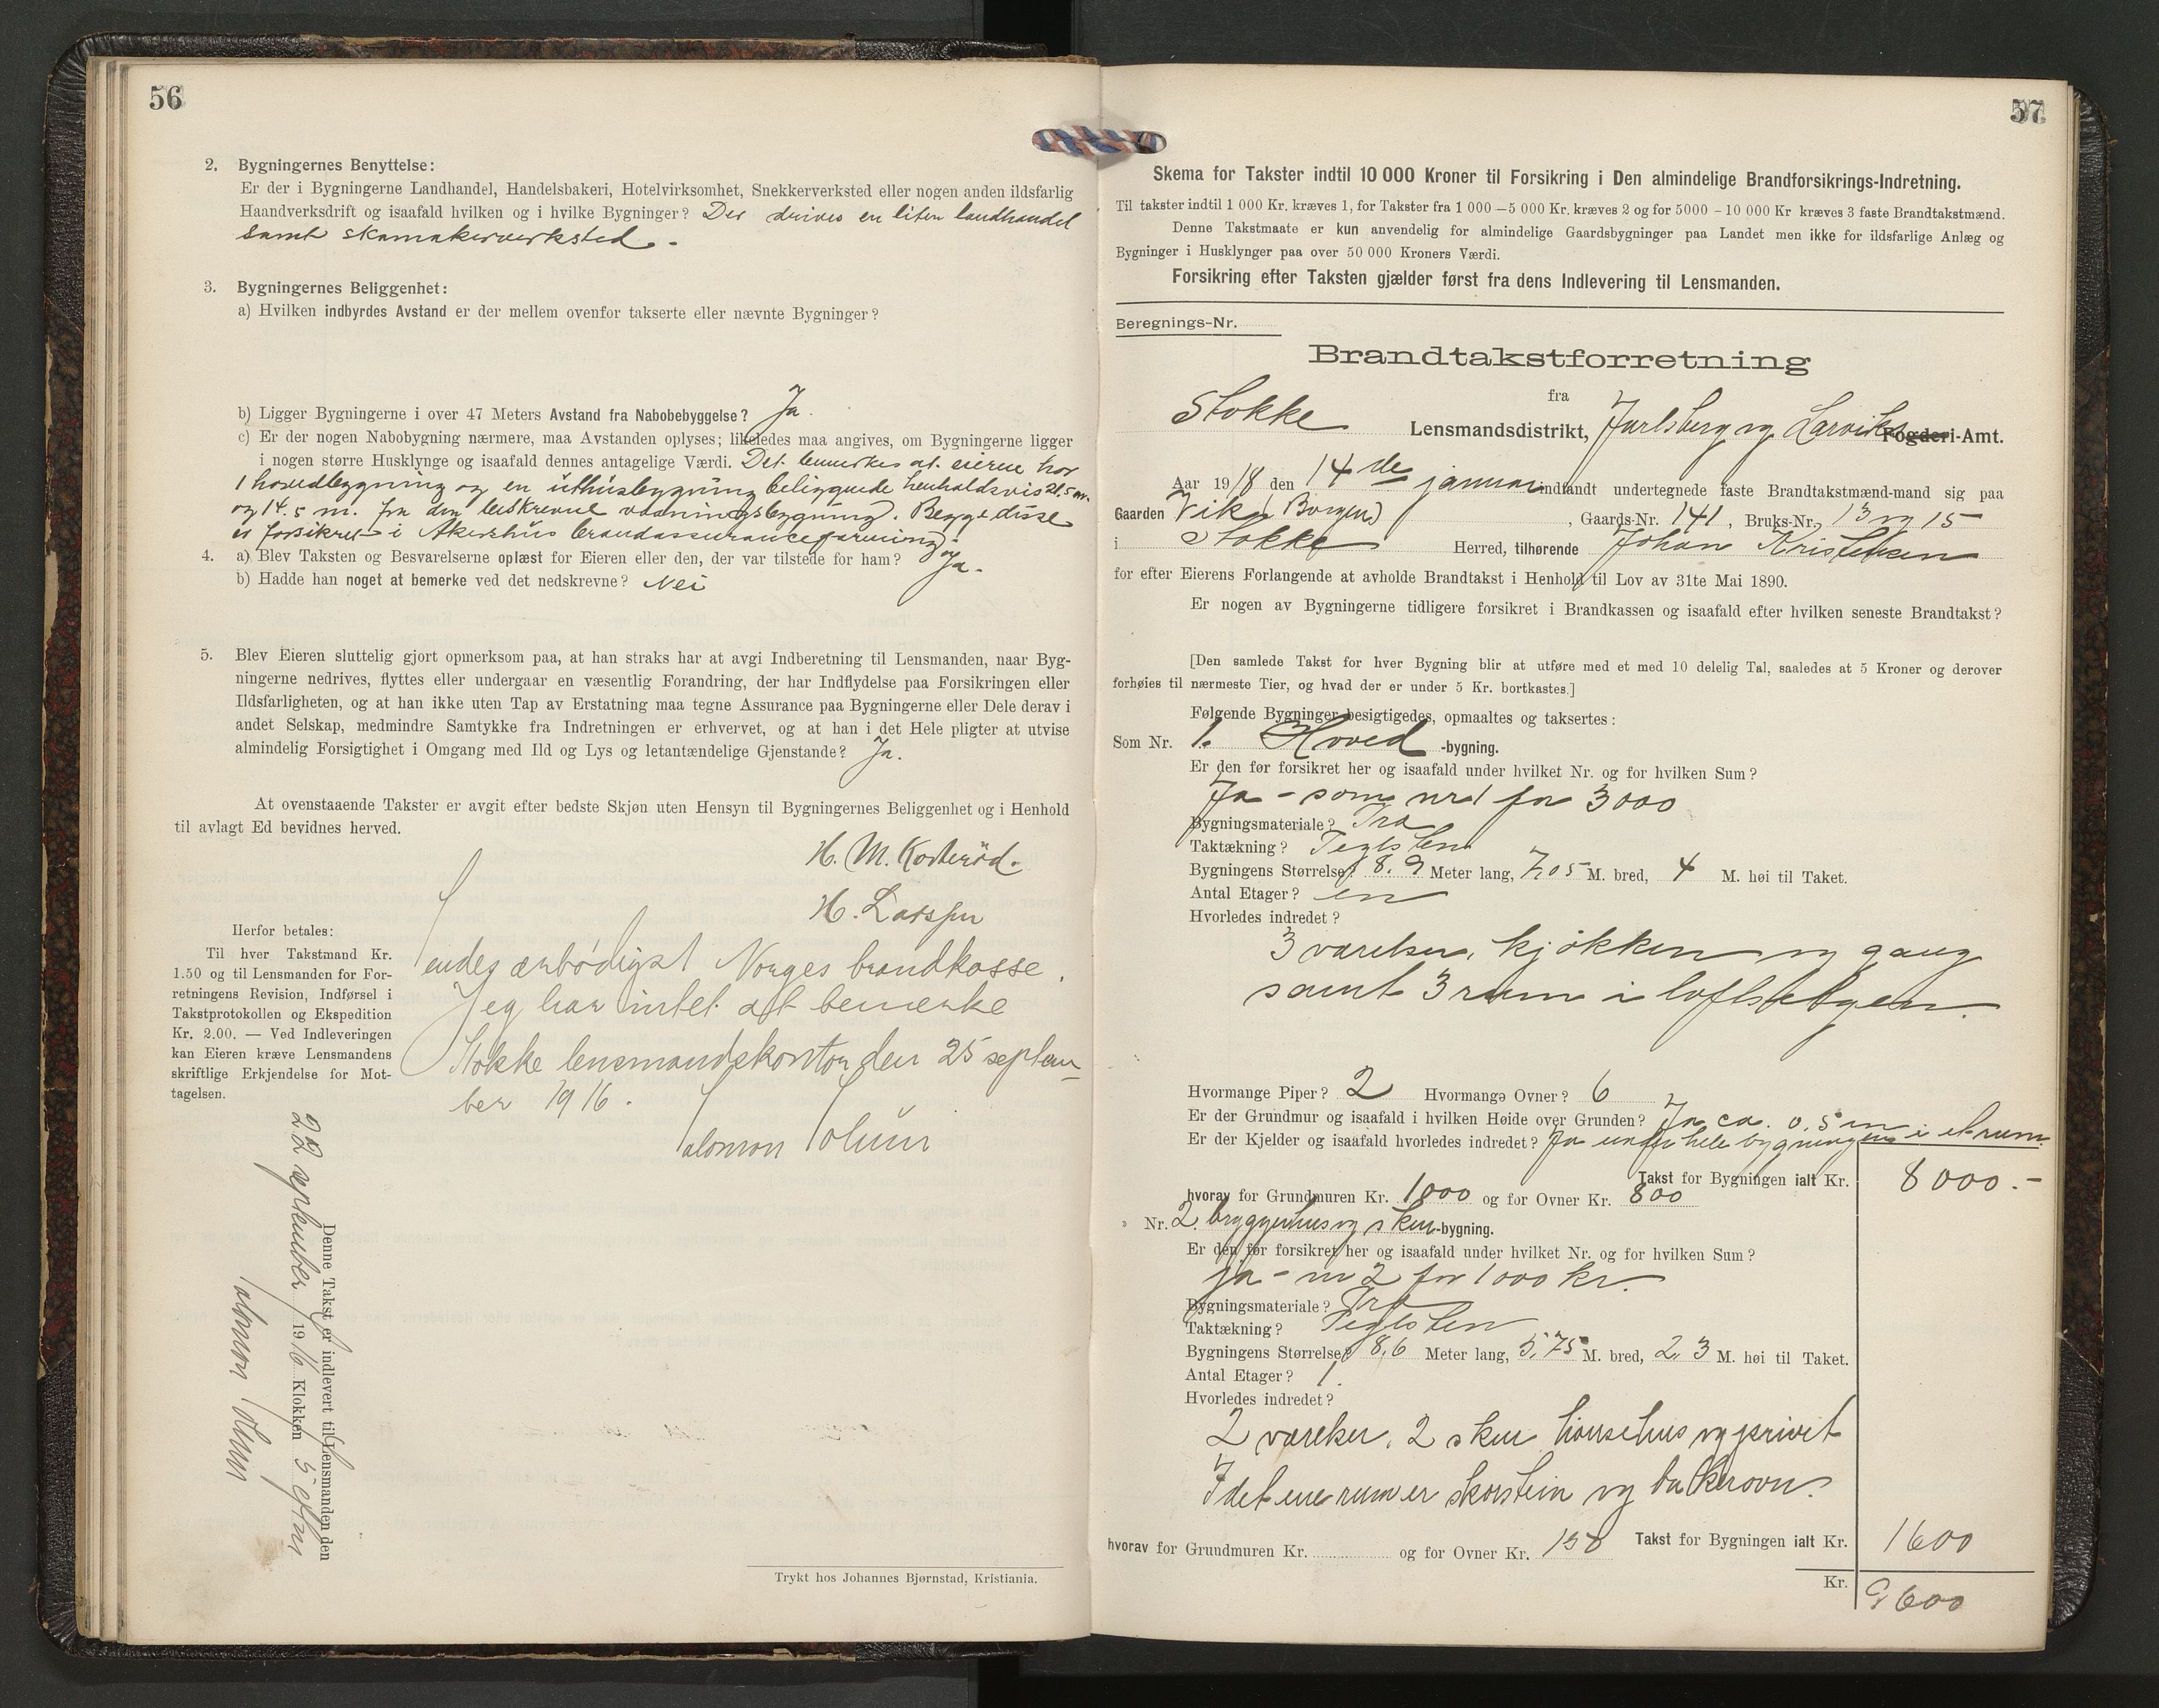 56
2. Bygningernes Benyttelse:
Er der i Bygningerne Landhandel, Handelsbakeri, Hotelvirksomhet, Snekkerverksted eller nogen anden ildsfarlig
Haandverksdrift og isaafald hvilken og i hvilke Bygninger? Der drives en liten landhandel
samt skomakerverksted.
3. Bygningernes Beliggenhet:
a) Hvilken indbyrdes Avstand er der mellem ovenfor takserte eller nævnte Bygninger?
b) Ligger Bygningerne i over 47 Meters Avstand fra Nabobebyggelse? Ja.
c) Er der nogen Nabobygning nærmere, maa Avstanden oplyses; likeledes maa angives, om Bygningerne ligger
i nogen større Husklynge og isaafald dennes antagelige Værdi. Det bemerkes at eieren har
1 hovedbygning og en uthusbygning beliggende henholdsvis 21.5 m.
og 14.5 m. fra den beskrevne vaaningsbygning. Begge disse
er forsikret i Akershus brandassuranceforening
4. a) Blev Taksten og Besvarelserne oplæst for Eieren eller den, der var tilstede for ham? Ja.
b) Hadde han noget at bemerke ved det nedskrevne? Nei
5. Blev Eieren sluttelig gjort opmerksom paa, at han straks har at avgi Indberetning til Lensmanden, naar Byg-
ningerne nedrives, flyttes eller undergaar en væsentlig Forandring, der har Indflydelse paa Forsikringen eller
Ildsfarligheten, og at han ikke uten Tap av Erstatning maa tegne Assurance paa Bygningerne eller Dele derav i
andet Selskap, medmindre Samtykke fra Indretningen er erhvervet, og at han i det Hele pligter at utvise
almindelig Forsigtighet i Omgang med Ild og Lys og letantændelige Gjenstande? Ja.
At ovenstaaende Takster er avgit efter bedste Skjøn uten Hensyn til Bygningernes Beliggenhet og i Henhold
til avlagt Ed bevidnes herved.
H. M. Kosterød.
H. Larssen
Sendes ærbødigst Norges brandkasse.
Jeg har intet at bemerke
Stokke lensmandskontor, den 25 septem-
ber 1916.
Salomon Solum
Herfor betales:
Til hver Takstmand Kr.
1.50 og til Lensmanden for For-
retningens Revision, Indførsel i
Takstprotokollen og Ekspedition
Kr. 2.00. — Ved Indleveringen
kan Eieren kræve Lensmandens
skriftlige Erkjendelse for Mot-
tagelsen.
Denne Takst er indlevert til Lensmanden den
22 september 1916 Klokken 5 eftm
Salomon Solum
Trykt hos Johannes Bjørnstad, Kristiania.
57
Skema for Takster indtil 10 000 Kroner til Forsikring i Den almindelige Brandforsikrings-Indretning.
Til takster indtil 1 000 Kr. kræves 1, for Takster fra 1 000 — 5 000 Kr. kræves 2 og for 5000 – 10 000 Kr kræves 3 faste Brandtakstmænd.
Denne Takstmaate er kun anvendelig for almindelige Gaardsbygninger paa Landet men ikke for ildsfarlige Anlæg og
Bygninger i Husklynger paa over 50 000 Kroners Værdi.
Forsikring efter Taksten gjælder først fra dens Indlevering til Lensmanden.
Beregnings-Nr.
Brandtakstforretning
fra
Stokke Lensmandsdistrikt, Jarlsberg og Larviks Fogderi-Amt.
Aar 1918 den 14de januar indfandt undertegnede faste Brandtakstmænd-mand sig paa
Gaarden Vika (Borgen), Gaards-Nr. 141, Bruks-Nr. 13 og 15
i Stokke Herred, tilhørende Johan Kristensen
for efter Eierens Forlangende at avholde Brandtakst i Henhold til Lov av 31te Mai 1890.
Er nogen av Bygningerne tidligere forsikret i Brandkassen og isaafald efter hvilken seneste Brandtakst?
[Den samlede Takst for hver Bygning blir at utføre med et med 10 delelig Tal, saaledes at 5 Kroner og derover
forhøies til nærmeste Tier, og hvad der er under 5 Kr. bortkastes.]
Følgende Bygninger besigtigedes, opmaaltes og taksertes:
Som Nr. 1. Hoved-bygning.
Er den før forsikret her og isaafald under hvilket Nr. og for hvilken Sum?
Ja - som nr 1 for 3000
Bygningsmateriale? Træ
Taktækning? Teglsten
Bygningens Størrelse? 8.9 Meter lang, 7.05 M. bred, 4 M. høi til Taket.
Antal Etager? en
Hvorledes indredet?
3 værelser, kjøkken og gang
samt 3 rum i loftsetagen.
Hvormange Piper? 2 Hvormange Ovner? 6
Er der Grundmur og isaafald i hvilken Høide over Grunden? Ja ca. 0.5 m
Er der Kjelder og isaafald hvorledes indredet? Ja under hele bygningen i et rum.
Takst for Bygningen ialt Kr. 8000.-
hvorav for Grundmuren Kr. 1000 og for Ovner Kr. 800
» Nr. 2. bryggerhus og skur-bygning.
Er den før forsikret her og isaafald under hvilket Nr. og for hvilken Sum?
ja - nr 2 for 1000 kr.
Bygningsmateriale? Træ
Taktækning? Teglsten
Bygningens Størrelse? 8.6 Meter lang, 5.75 M. bred, 2.3 M. høi til Taket.
Antal Etager? 1.
Hvorledes indredet?
2 værelser, 2 skur hønsehus og privet
I det ene rum er skorstein og bakerovn.
Takst for Bygningen ialt Kr. 1600
hvorav for Grundmuren Kr. og for Ovner Kr. 150
Kr. 9600